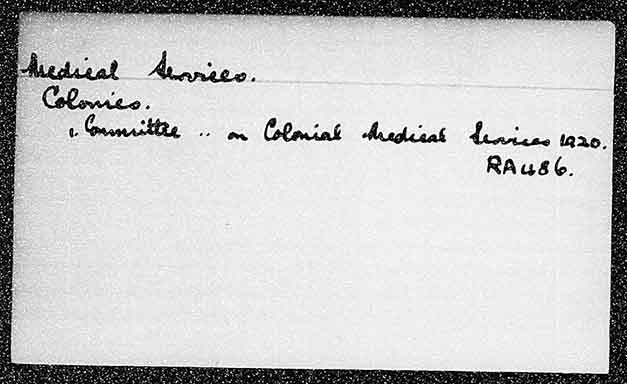 Medical Services.
Colonies.
, Committee .. on Colonial Medical Services 1920.
RA486.